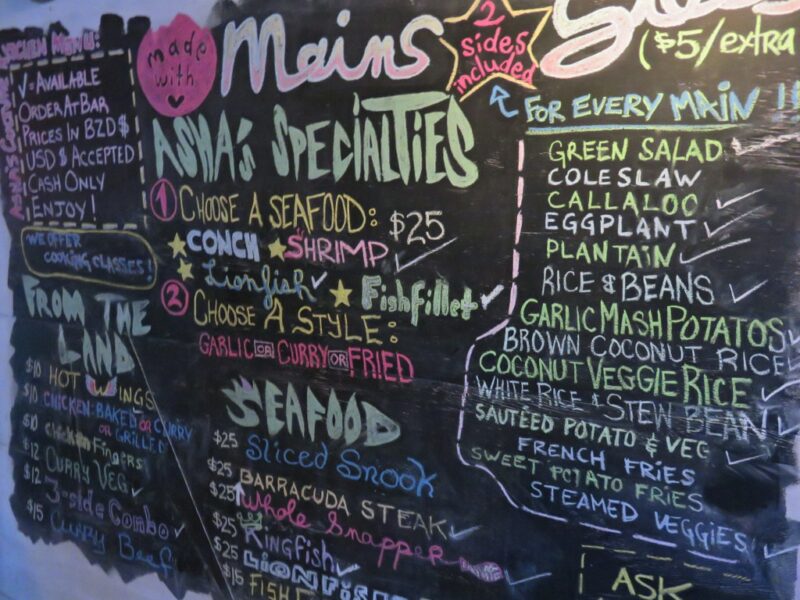 ✓ = AVAILABLE
ORDER AT BAR
PRICES IN BZD $
USD $ ACCEPTED
CASH ONLY
ENJOY!
WE OFFER
COOKING CLASSES!
FROM THE
LAND
$10 HOT WINGS
$10 CHICKEN: BAKED OR CURRY
OR GRILLED
$10 CHICKEN FINGERS
$12 CURRY VEG ✓
$12 3-side Combo ✓
$15 Curry Beef
made
with
Mains
2
sides
included
ASHA'S SPECIALTIES
1 CHOOSE A SEAFOOD: $25
CONCH SHRIMP ✓
Lionfish ✓ Fish Fillet ✓
2 CHOOSE A STYLE:
GARLIC OR CURRY OR FRIED
SEAFOOD
$25 Sliced Snook
$25 BARRACUDA STEAK ✓
$25 Whole Snapper
$25 KINGFISH ✓
$25 LIONFISH
$15 FISH
($5/extra
FOR EVERY MAIN !!
GREEN SALAD ✓
COLESLAW
CALLALOO ✓
EGGPLANT ✓
PLANTAIN ✓
RICE & BEANS ✓
GARLIC MASH POTATOS ✓
BROWN COCONUT RICE
COCONUT VEGGIE RICE ✓
WHITE RICE & STEW BEAN ✓
SAUTÉED POTATO & VEG ✓
FRENCH FRIES
SWEET POTATO FRIES
STEAMED VEGGIES ✓
ASK